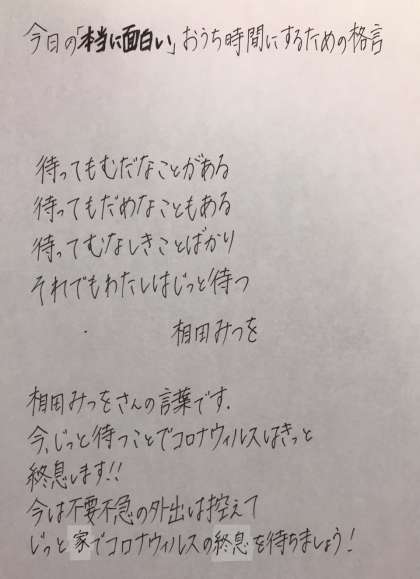 今日の「本当に面白い」おうち時間にするための格言
待ってもむだなことがある
待ってもだめなこともある
待ってむなしきことばかり
それでもわたしはじっと待つ
相田みつを
相田みつをさんの言葉です.
今、じっと待つことでコロナウィルスはきっと
終息します!!
今は不要不急の外出は控えて
じっと家でコロナウィルスの終息を待ちましょう!